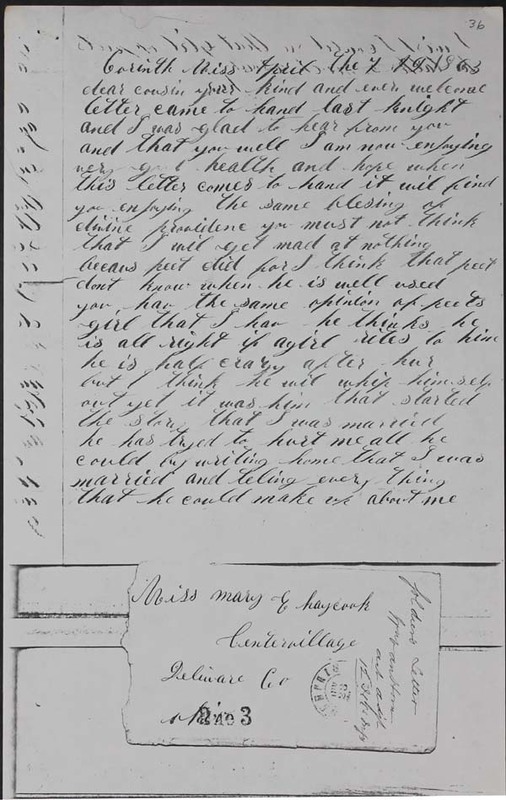 36
Corinth Miss April the 7 1863
dear cousin your kind and ever welcome
letter came to hand last knight
and I was glad to hear from you
and that you well I am now enjoying
very good health and hope when
this letter comes to hand it wil find
you enjoying the same blesing of
divine providence you must not think
that I will get mad at nothing
becaus peet did for I think that peet
dont know when he is well used
you hav the same opinion of peets
girl that I hav he thinks he
is all right if a girl rites to him
he is half crazy after hur
but I think he wil whip himself
out yet it was him that started
the story that I was married
he has tryed to hurt me all he
could by writing home that I was
married and teling every thing
that he could make up about me
Miss Mary E haycook
Centervillage
Deliware Co
Ohio
3
soldiers Letter